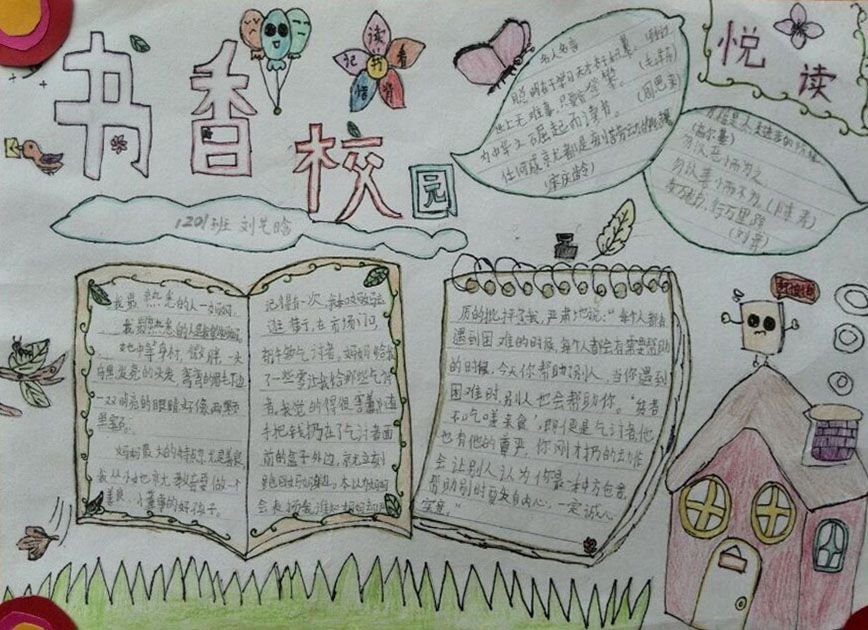 书香校园
读书看背悟记
悦读
1201班 刘艺晗
名人名言
聪明在于学习,天才在于积累。
世上无难事,只要肯登攀。(毛泽东)
为中华之崛起而读书。(周恩来)
任何成京尤都是刻苦劳动的
(宋庆龄)
书籍是人类进步的阶梯
(高尔基)
勿以恶小而为之
勿以善小而不为。
读万卷书,行万里路
(刘彝)
我最熟悉的人—妈妈
我最熟悉的人是我的妈妈。
她中等身材,微胖,一头
乌黑发亮的头发,弯弯的眉毛下边
一双明亮的眼睛好像两颗
黑宝石。
妈妈最大的特点尤是善良,
我从小她京尤教育要做一个
善良、小董事的好孩子。
记得有一次,我和妈妈
逛街,在市场门口
有个乞讨者。妈妈给我
了一些零让我给那些乞讨
者,我觉的得很害羞,随
手把钱扔在了乞讨者面
前的盒子外边,京尤立刻
跑回妈妈身边。本以为妈妈
会表扬我,谁知
厉的批评了我,严肃地说:“每个人都会
遇到困难的时候,每个人都会有需要帮助
的时候,今天你帮助了别人,当你遇到
困难时,别人也会帮助你。“贫者
不吃嗟来食”,即便是乞讨者,他
也有他的尊严,你刚才扔的动作
会让别人认为你是一种方包舍,
帮助别时莫失自内心,一定诚心
实意。”